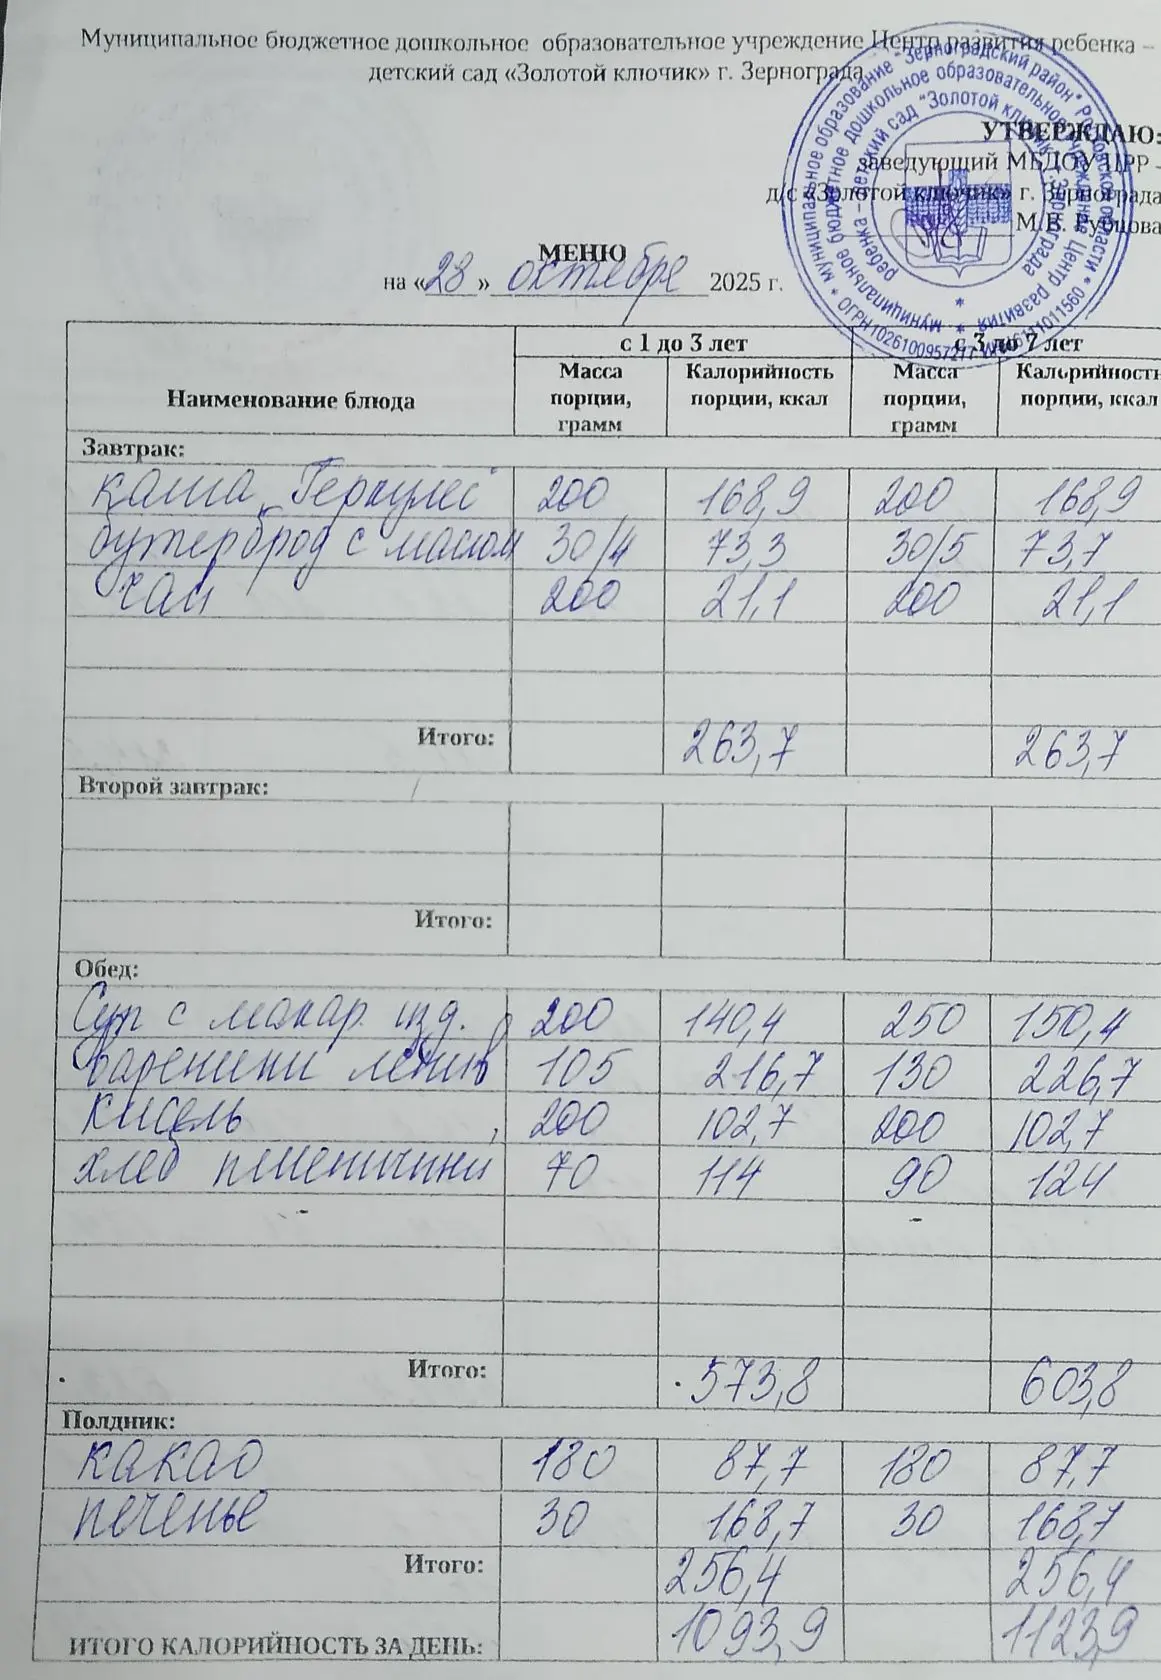 Муниципальное бюджетное дошкольное образовательное учреждение Центр развития ребенка –
детский сад «Золотой ключик» г. Зернограда
УТВЕРЖДАЮ:
заведующий МБДОУ ЦРР -
д/с «Золотой ключик» г. Зернограда
М.В. Рубцова
муниципальное образование "Зерноградский район" Ростовской области * ОГРН 1026100957217 ИНН 6111011560 *
муниципальное бюджетное дошкольное образовательное учреждение Центр развития
ребенка – детский сад "Золотой ключик" г. Зернограда
МЕНЮ
на «28» октября 2025 г.
с 1 до 3 лет с 3 до 7 лет
Наименование блюда Масса порции, грамм Калорийность порции, ккал Масса порции, грамм Калорийность порции, ккал
Завтрак:
каша „Геркулес" 200 168,9 200 168,9
бутерброд с маслом 30/4 73,3 30/5 73,7
чай 200 21,1 200 21,1
Итого: 263,7 263,7
Второй завтрак:
Итого:
Обед:
Суп с макар. изд. 200 140,4 250 150,4
вареники ленив 105 216,7 130 226,7
кисель 200 102,7 200 102,7
хлеб пшеничный 70 114 90 124
Итого: 573,8 603,8
Полдник:
какао 180 87,7 180 87,7
печенье 30 168,7 30 168,7
Итого: 256,4 256,4
ИТОГО КАЛОРИЙНОСТЬ ЗА ДЕНЬ: 1093,9 1123,9